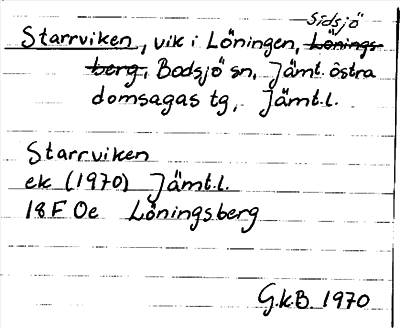 Sidsjö
Starrviken, vik i Löningen, Lönings-
berg, Bodsjö sn, Jämt. östra
domsagas tg, Jämt.l.
Starrviken
ek (1970) Jämt.l.
18F Oe Löningsberg
G.kB 1970